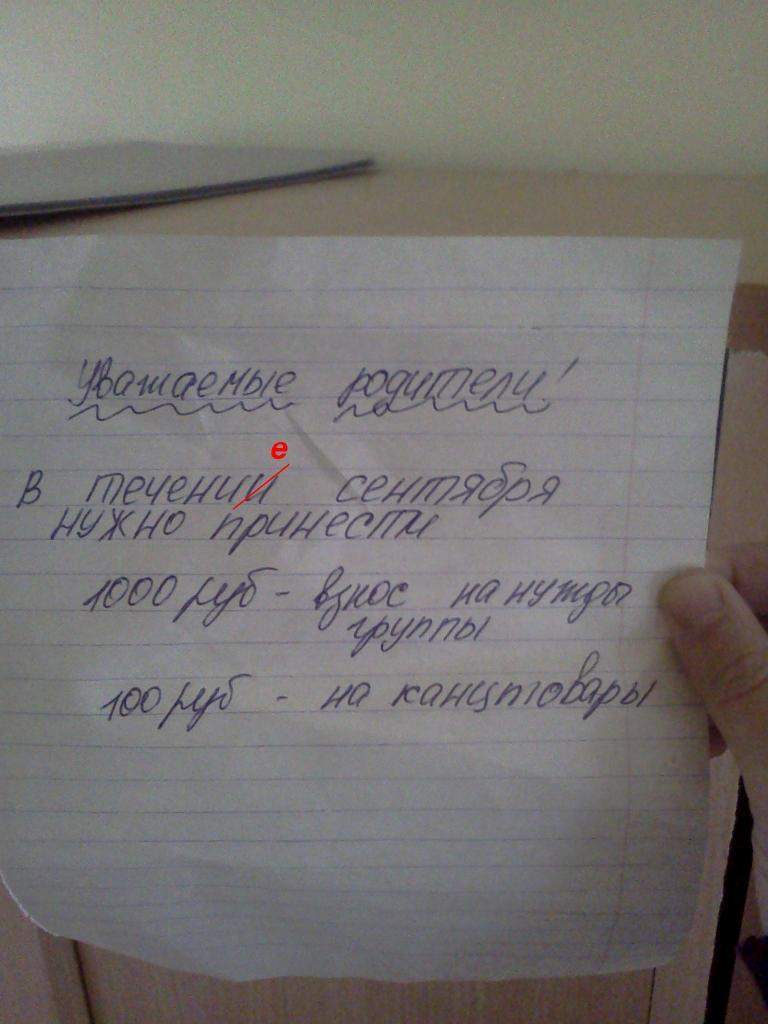 Уважаемые родители!
е
В течении сентября
нужно принести
1000 руб - взнос на нужды
группы
100 руб - на канцтовары